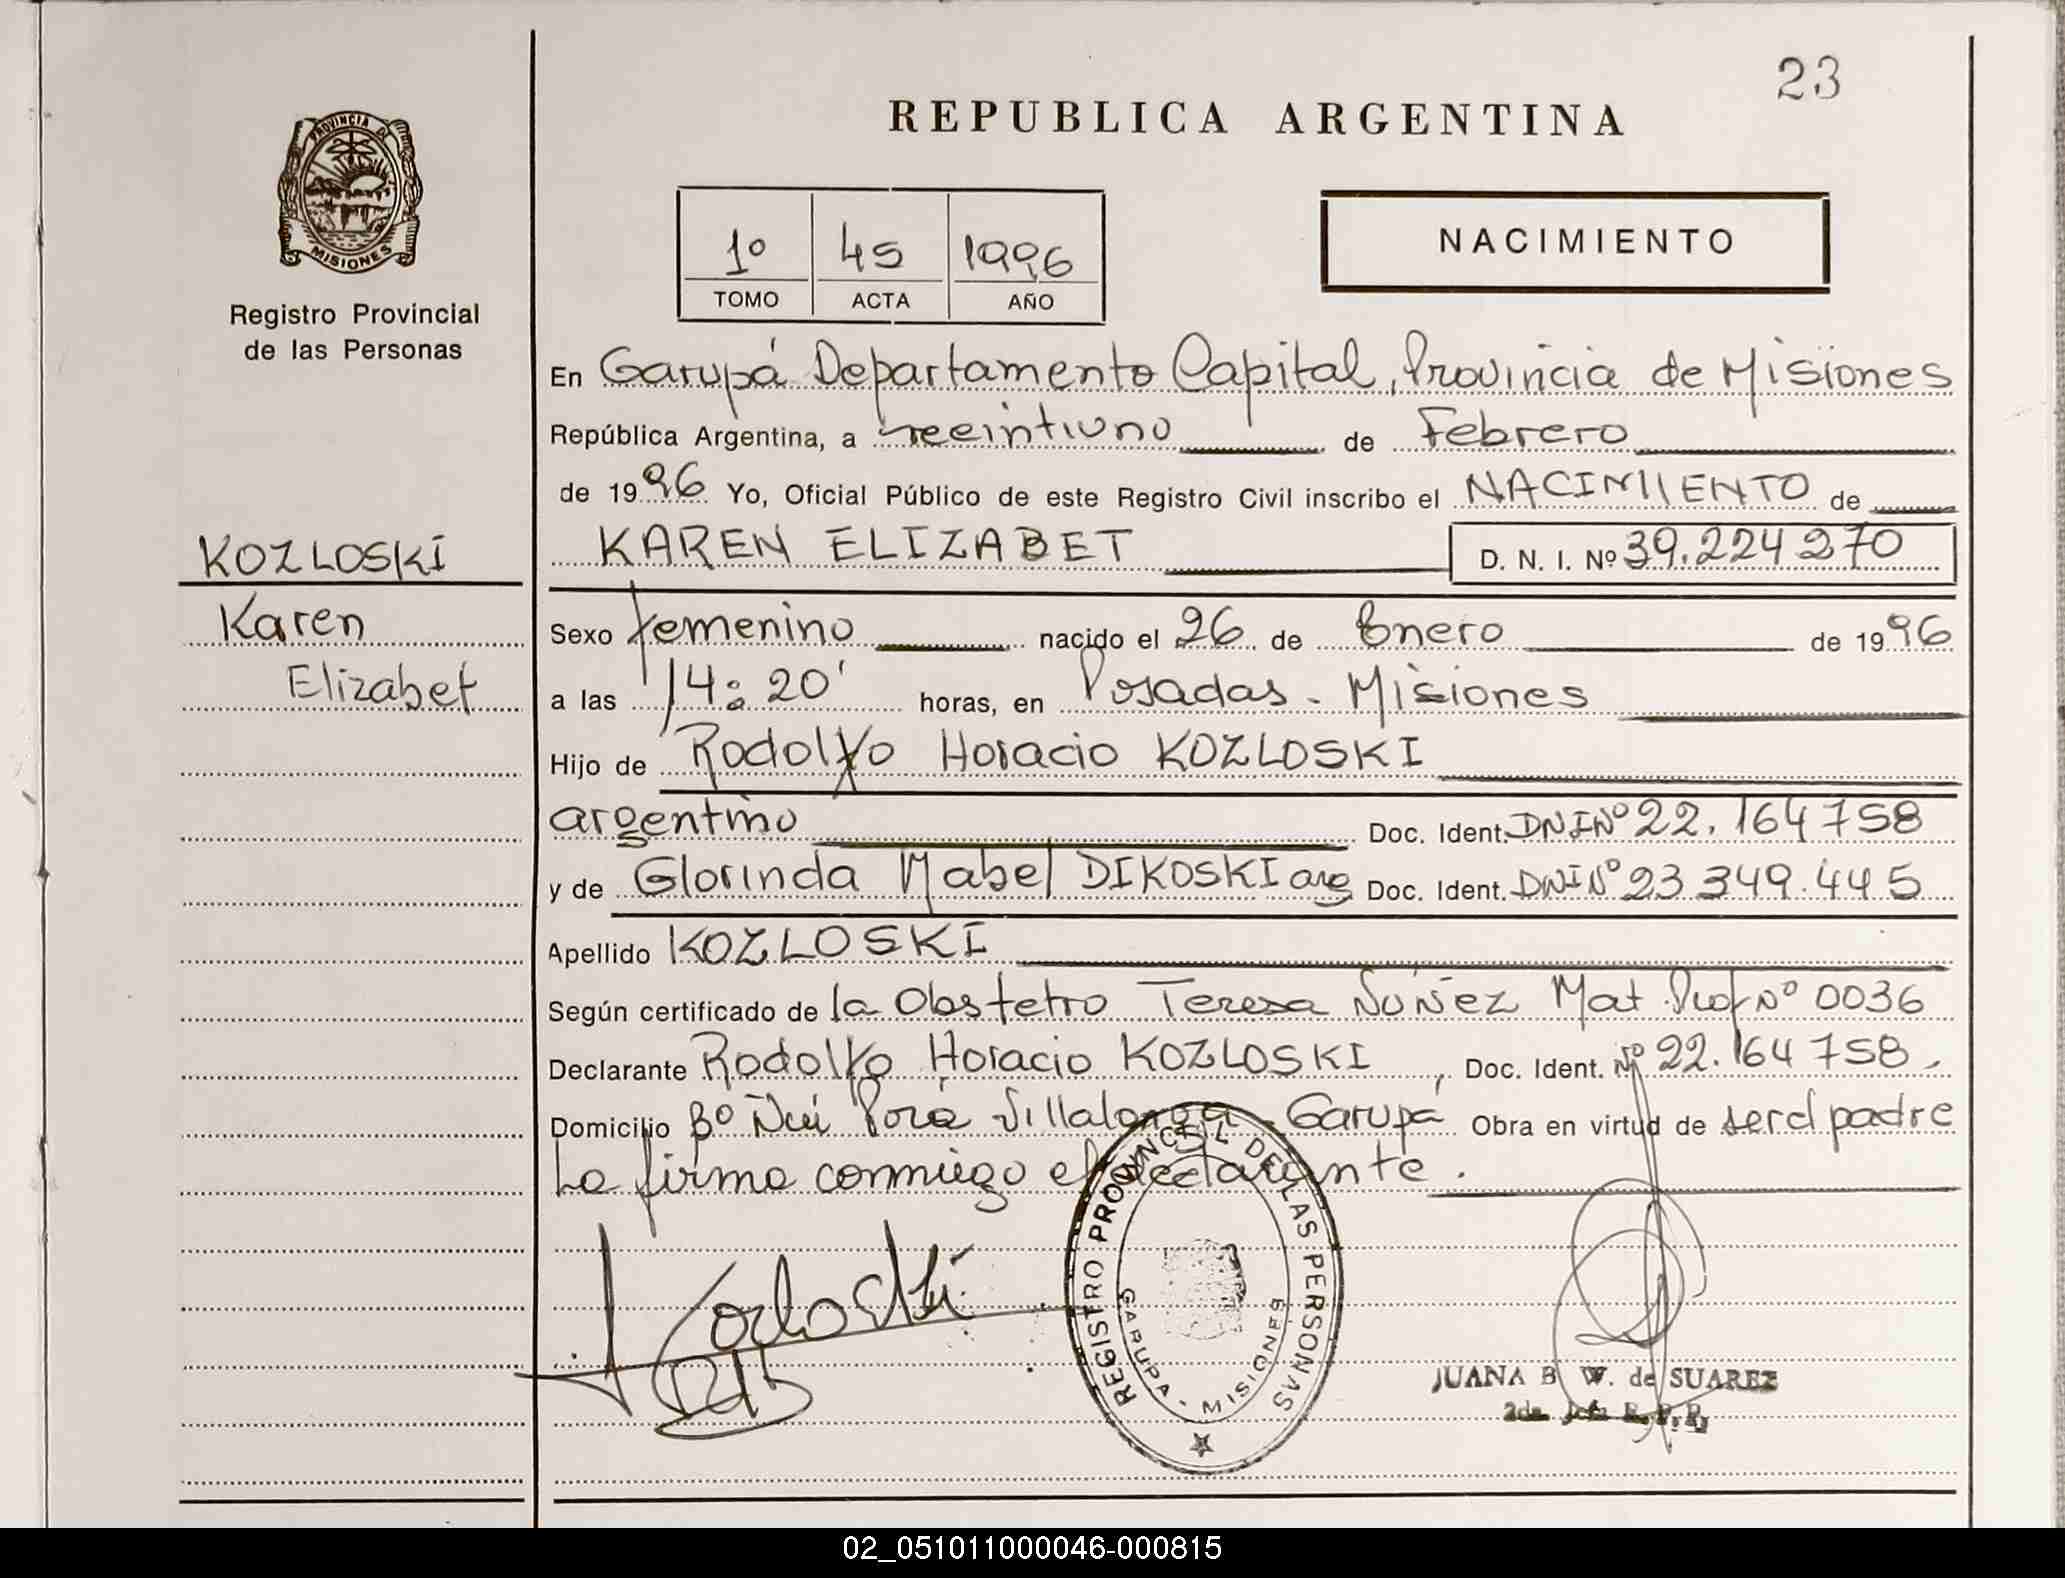 23
REPUBLICA ARGENTINA
PROVINCIA DE
MISIONES
Registro Provincial
de las Personas
1º 45 1996
TOMO ACTA AÑO
NACIMIENTO
En Garupá Departamento Capital, Provincia de Misiones
República Argentina, a veeintiuno de Febrero
de 1996 Yo, Oficial Público de este Registro Civil inscribo el NACIMIENTO de
KOZLOSKI
KAREN ELIZABET D. N. I. Nº 39.224270
Karen
Sexo femenino nacido el 26 de Enero de 1996
Elizabet
a las 14:20' horas, en Posadas - Misiones
Hijo de Rodolfo Horacio KOZLOSKI
argentino Doc. Ident. DNINº 22.164758
y de Glorinda Mabel DIKOSKI arg Doc. Ident. DNINº 23349.445
Apellido KOZLOSKI
Según certificado de la Obstetro Teresa Nuñez Mat Prof Nº 0036
Declarante Rodolfo Horacio KOZLOSKI, Doc. Ident. Nº 22.164758.
Domicilio Bº Ñu Porá Villalonga - Garupá Obra en virtud de ser el padre
La firma conmigo el declarante.
Kozloski
REGISTRO PROVINCIAL DE LAS PERSONAS
GARUPA - MISIONES
JUANA B W. de SUAREZ
2da. Jefa R.P.P.
02_051011000046-000815